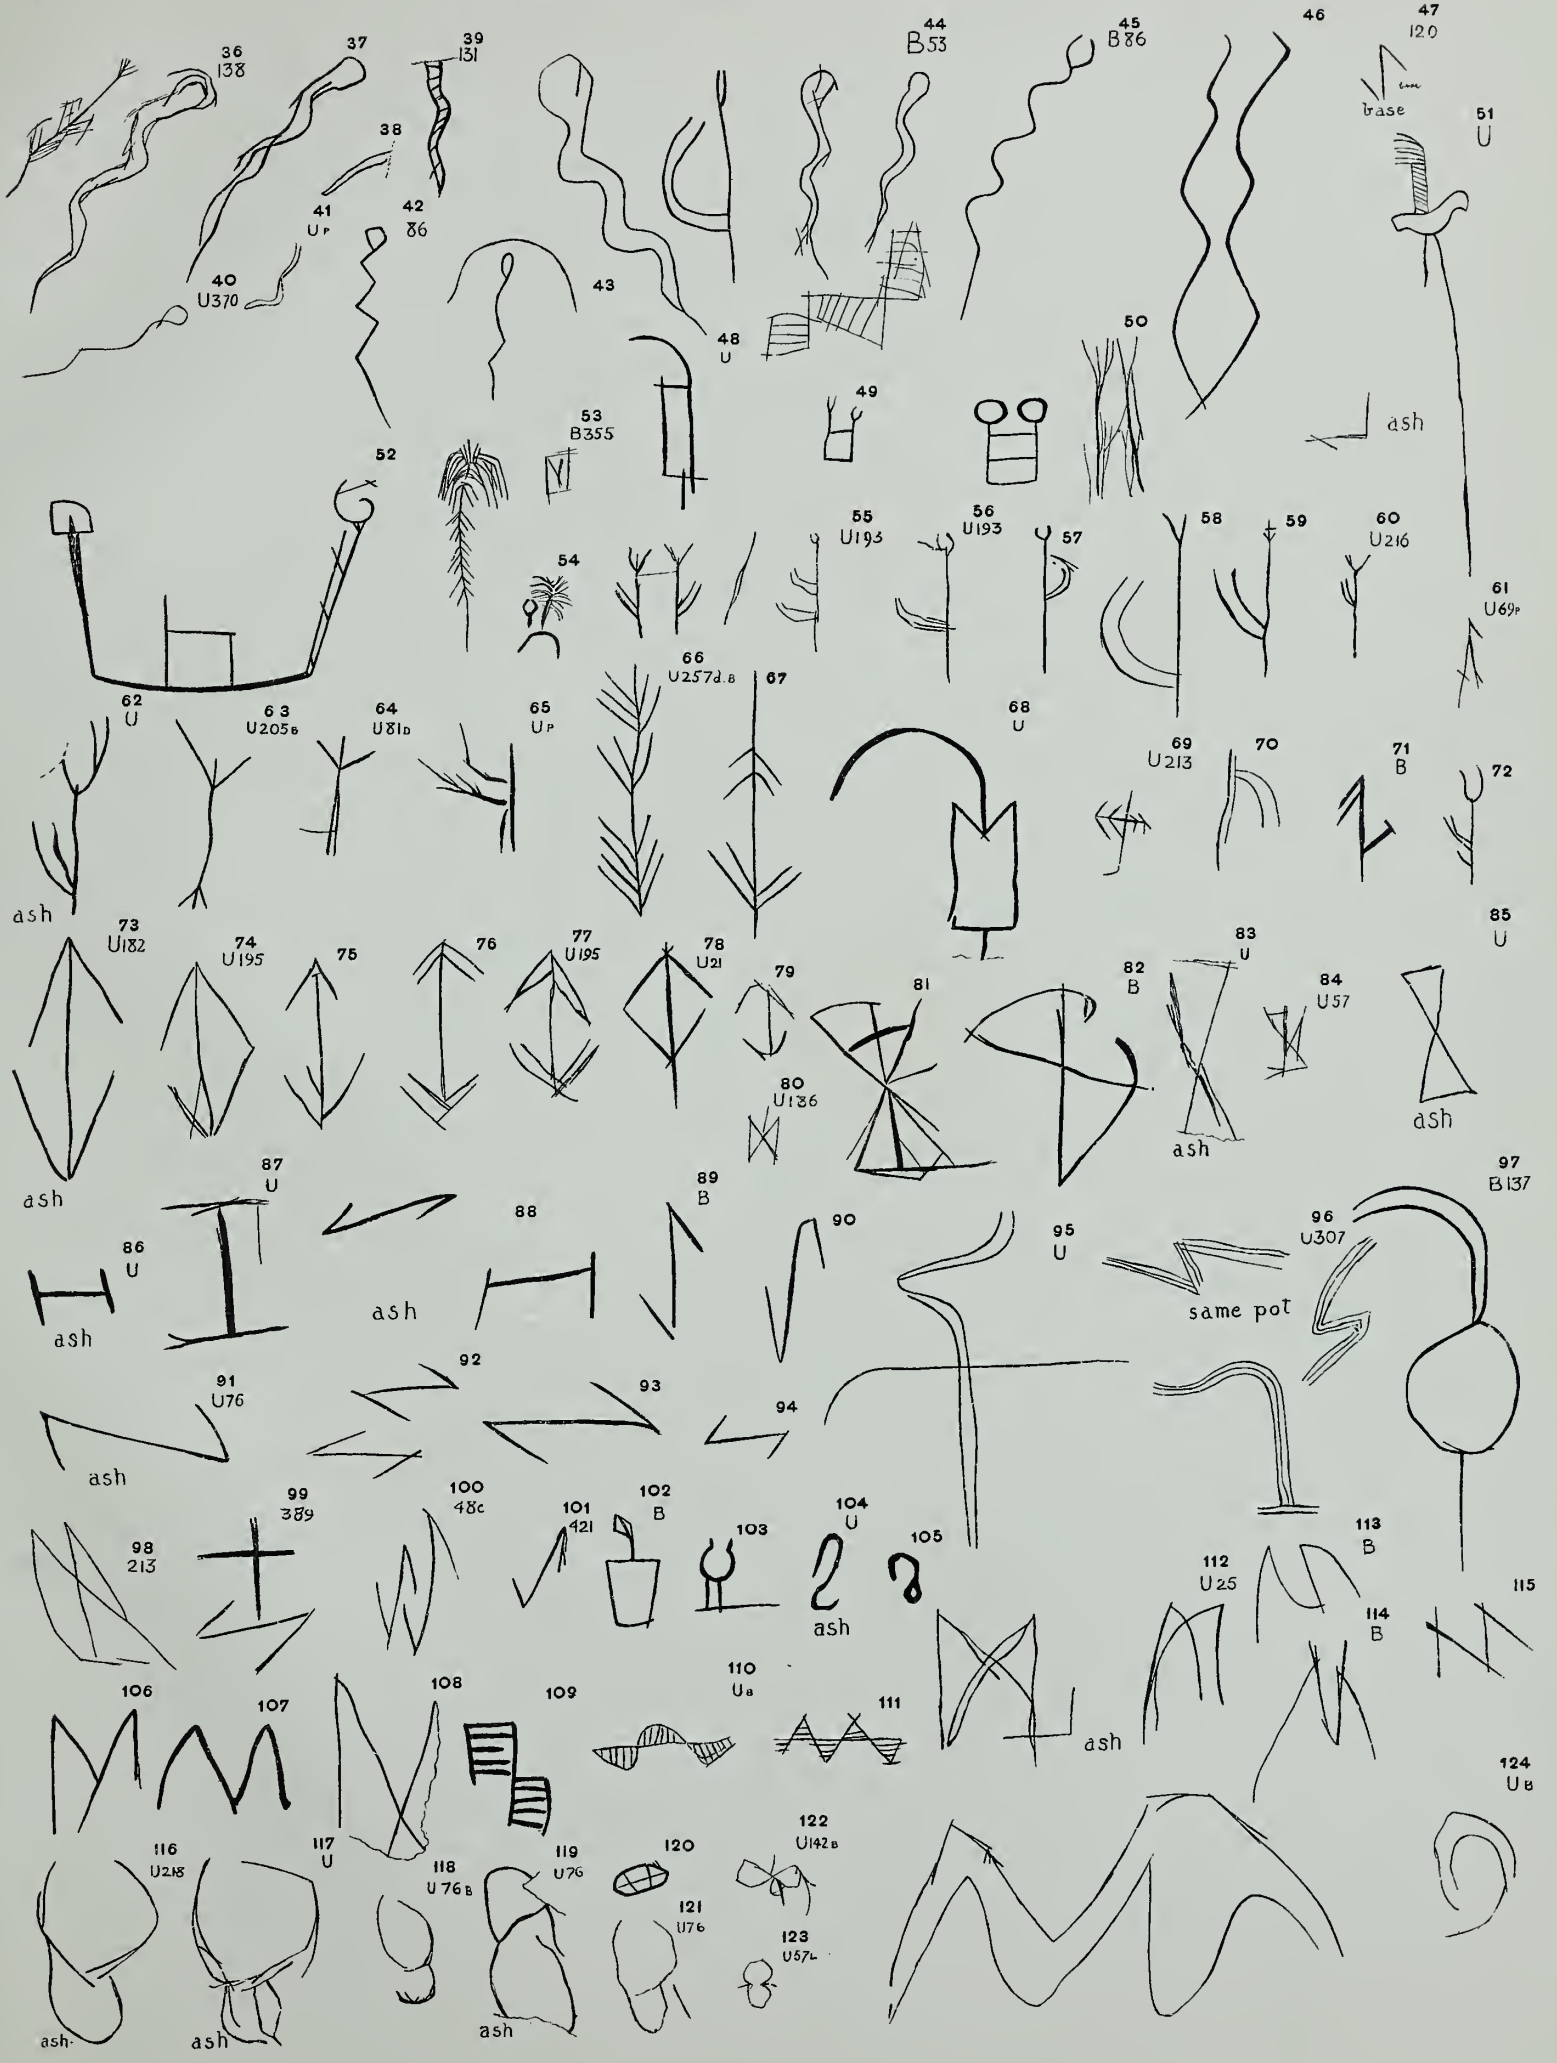 36
138
37
39
131
44
B53
45
B86
46
47
120
base
51
U
38
41
UP
42
86
40
U370
43
48
U
50
49
ash
53
B355
52
54
55
U193
56
U193
57
58
59
60
U216
61
U69P
62
U
63
U205B
64
U81D
65
UP
66
U257d.B
67
68
U
69
U213
70
71
B
72
ash
73
U182
74
U195
75
76
77
U195
78
U21
79
81
82
B
83
U
84
U57
85
U
80
U186
ash
ash
ash
87
U
88
89
B
90
95
U
96
U307
97
B137
86
U
ash
ash
same pot
91
U76
92
93
94
ash
98
213
99
389
100
48c
101
421
102
B
103
104
U
105
ash
112
U25
113
B
114
B
115
106
107
108
109
110
UB
111
ash
124
UB
116
U218
117
U
118
U76B
119
U76
120
121
U76
122
U142B
123
U57L
ash
ash
ash